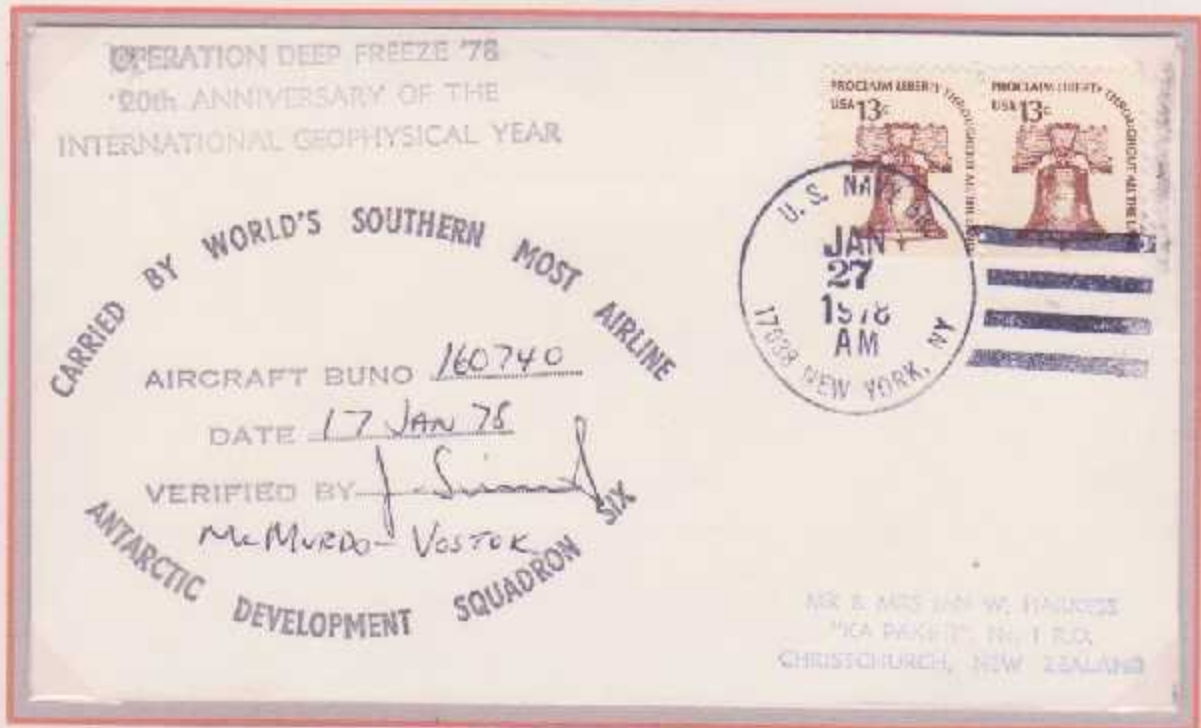 OPERATION DEEP FREEZE '78
20th ANNIVERSARY OF THE
INTERNATIONAL GEOPHYSICAL YEAR
PROCLAIM LIBERTY THROUGHOUT ALL THE
USA 13c
PROCLAIM LIBERTY THROUGHOUT ALL THE
USA 13c
U.S. NAVY
JAN
27
1978
AM
17038 NEW YORK, NY
CARRIED BY WORLD'S SOUTHERN MOST AIRLINE
AIRCRAFT BUNO 160740
DATE 17 JAN 78
VERIFIED BY J.
McMURDO - VOSTOK
ANTARCTIC DEVELOPMENT SQUADRON SIX
MR & MRS IAN W.
No. 1 R.D.
CHRISTCHURCH, NEW ZEALAND